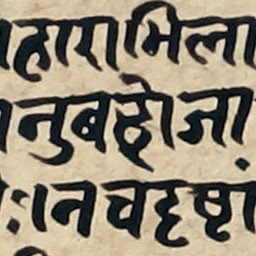 ाहाराभिला
ानुबद्धोजा
ाःानचदृष्टां